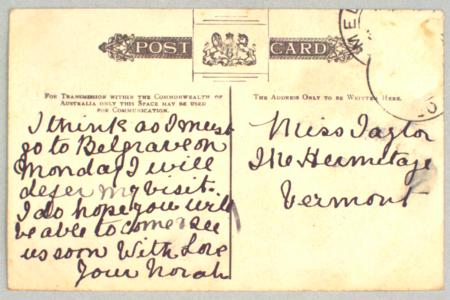 POST CARD
MEL
FOR TRANSMISSION WITHIN THE COMMONWEALTH OF
AUSTRALIA ONLY THIS SPACE MAY BE USED
FOR COMMUNICATION.
THE ADDRESS ONLY TO BE WRITTEN HERE.
I think as I must
go to Belgrave on
Monday I will
defer my visit.
I do hope you will
be able to come & see
us soon With Love
Your Norah
Miss Taylor
The Hermitage
Vermont